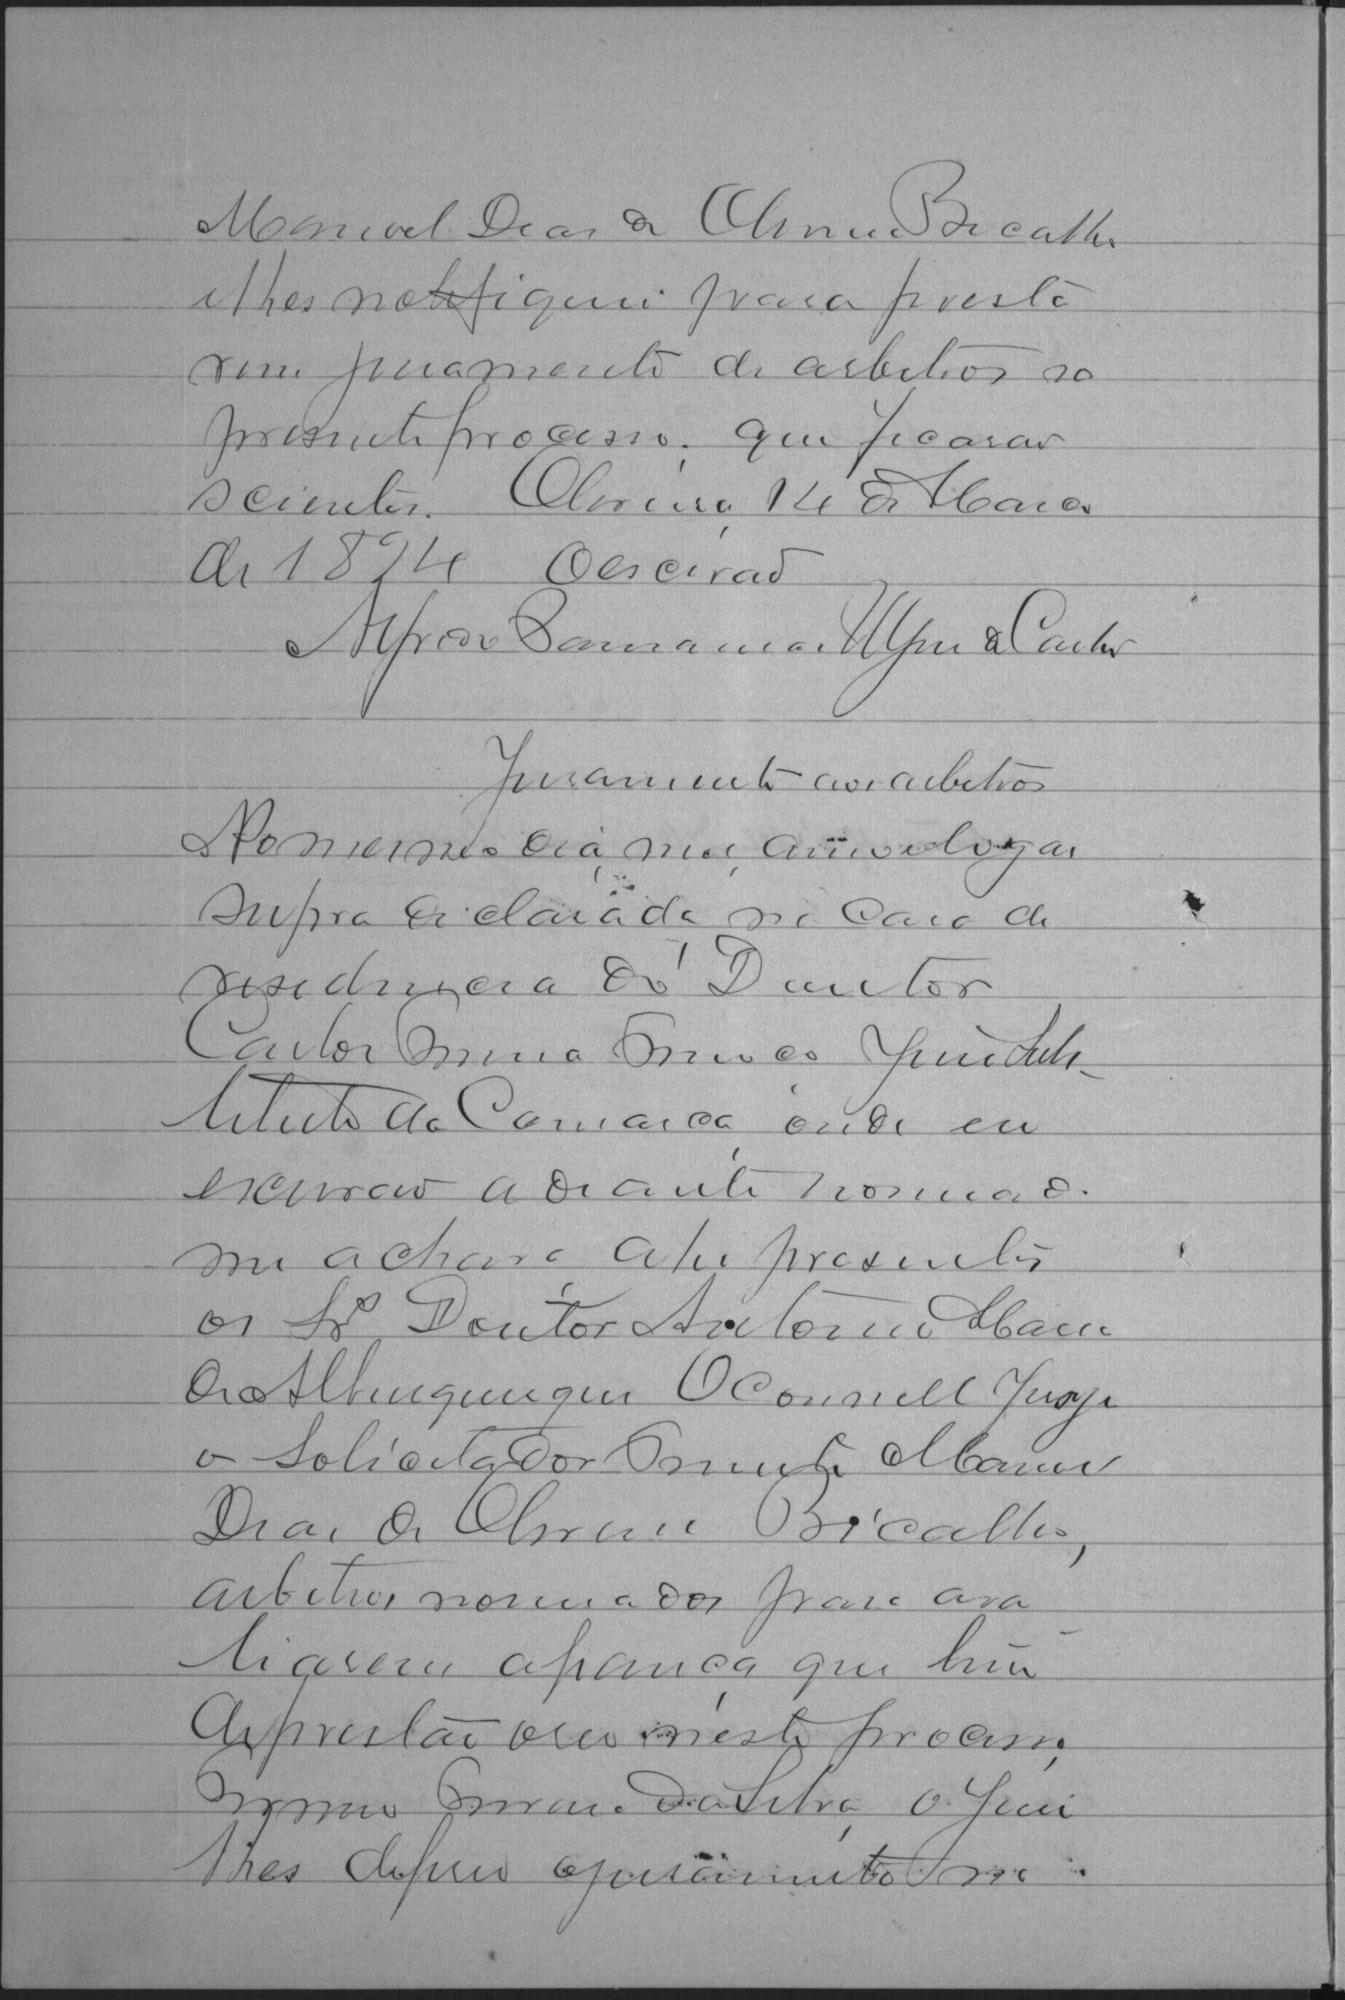 Manoel Dias de Oliveira Bicalho
e lhes notifiquei para presta
rem juramento de arbitros no
presente processo, que ficarao
scientes. Oliveira, 14 de Março
de 1894 O escrivaõ
Alfredo de Castro
Juramento aos arbitros
No mesmo dia, mes, anno e logar
supra declarada na casa de
residencia do Doutor
Carlos Juiz Subs-
tituto da Comarca, onde eu
escrivao adiante nomeado
me achava ahi presentes
os Srs Doutor Antonio Maria
de Albuquerque O Connell Jersey
o Solicitador Manoel
Dias de Oliveira Bicalho,
arbitros nomeados para ava
liarem a fiança que tem
de prestar o reo neste processo,
da Silva, o Juiz
lhes deferio o juramento na